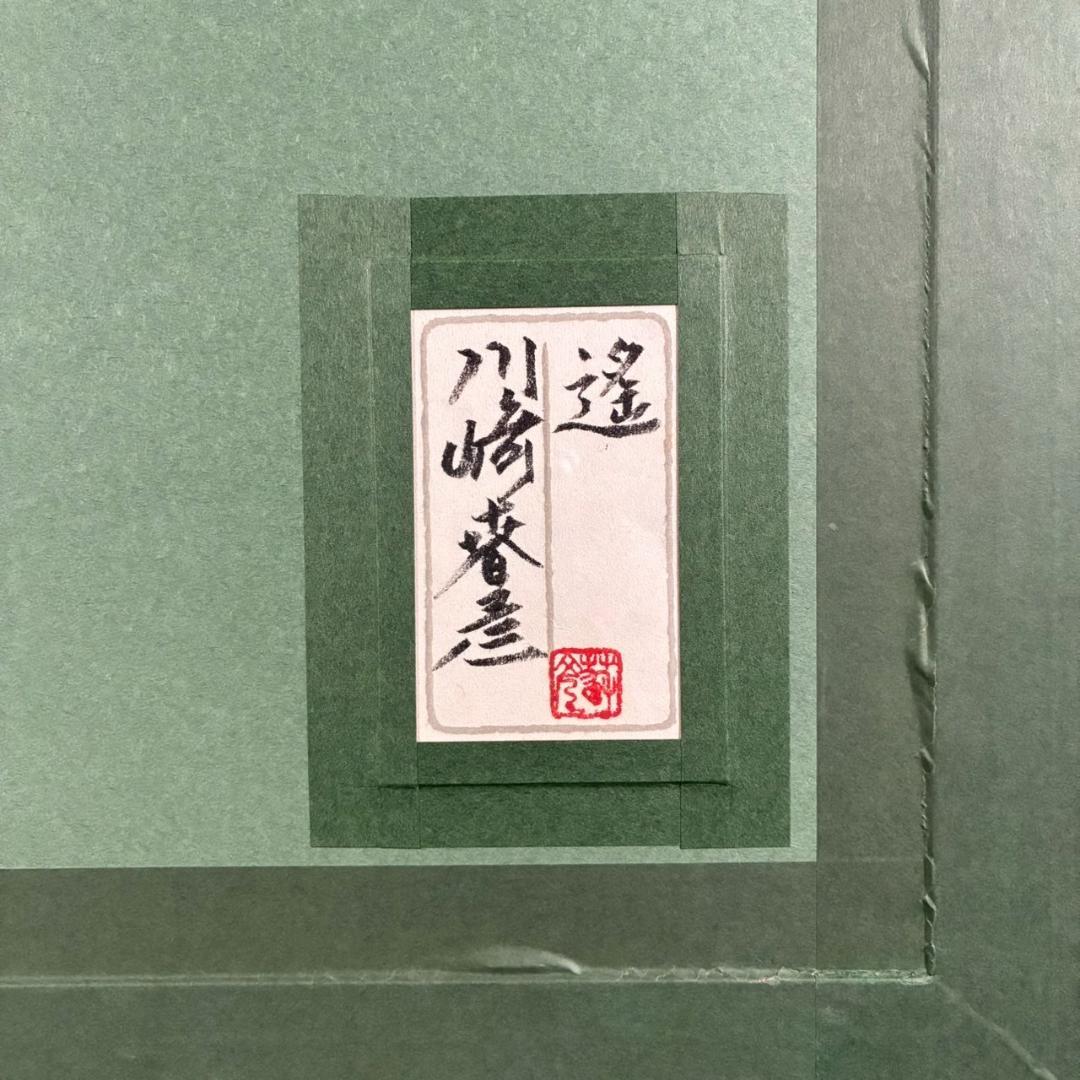 遙
川崎春彦